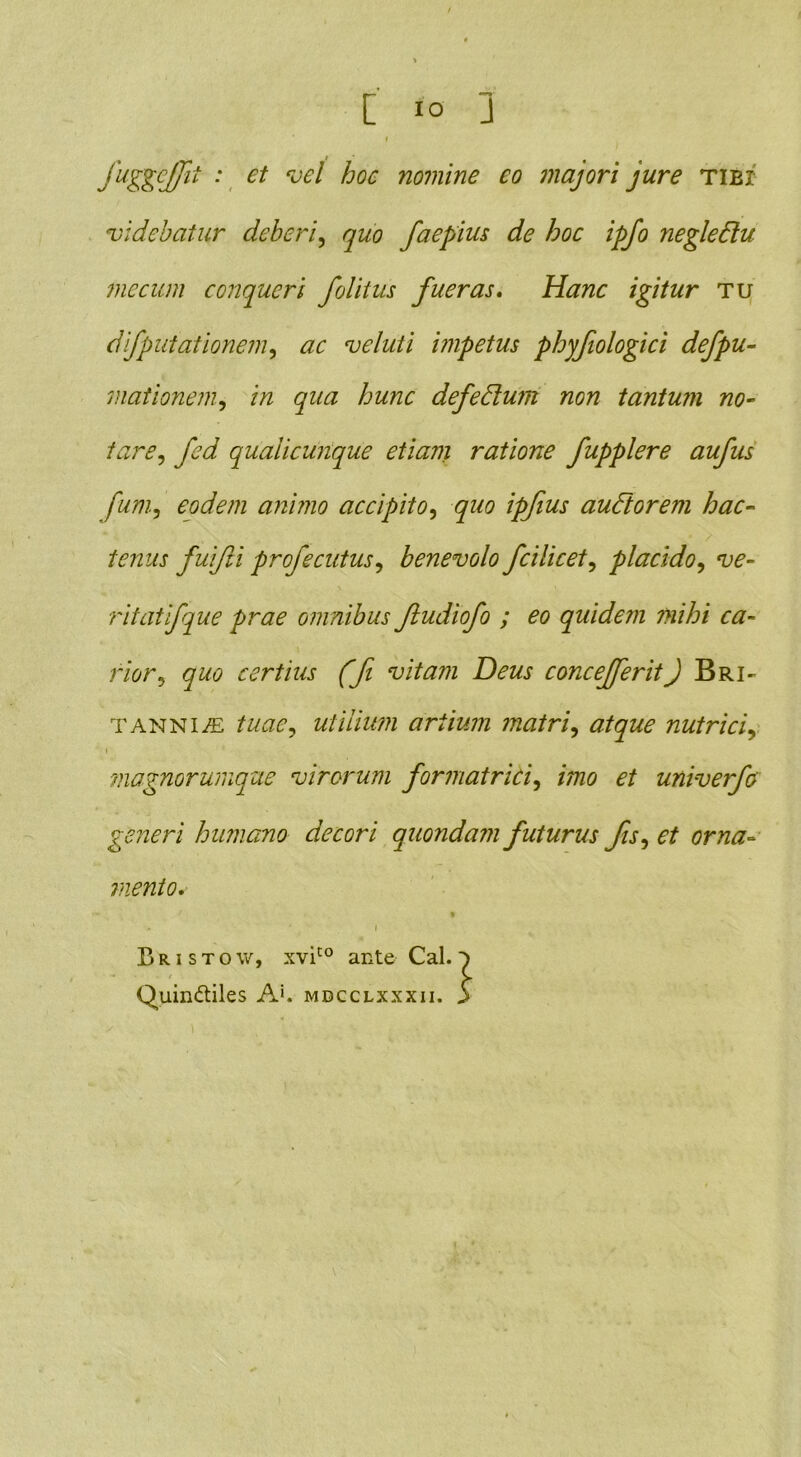 [ 10 ]
ſuggeſſit : et vel hoc nomine eo majori jure TIBI
videbatur deberi, quo ſaepius de hoc ipſo neglectu
mecum conqueri ſolitus fueras. Hanc igitur TU
diſputationem, ac veluti impetus phyſiologici deſpu-
mationem, in qua hunc defectum non tantum no-
tare, ſed qualicunque etiam ratione ſupplere auſus
ſum, eodem animo accipito, quo ipſius auctorem hac-
tenus fuiſti proſecutus, benevolo ſcilicet, placido, ve-
ritatiſque prae omnibus ſtudioſo ; eo quidem mihi ca-
rior, quo certius (ſi vitam Deus conceſſerit) BRI-
TANNIÆ tuae, utilium artium matri, atque nutrici,
magnorumque virorum formatrici, imo et univerſo
generi humano decori quondam futurus ſis, et orna-
mento.
BRISTOW, xvito ante Cal.
Quinctiles Ai. MDCCLXXXII.